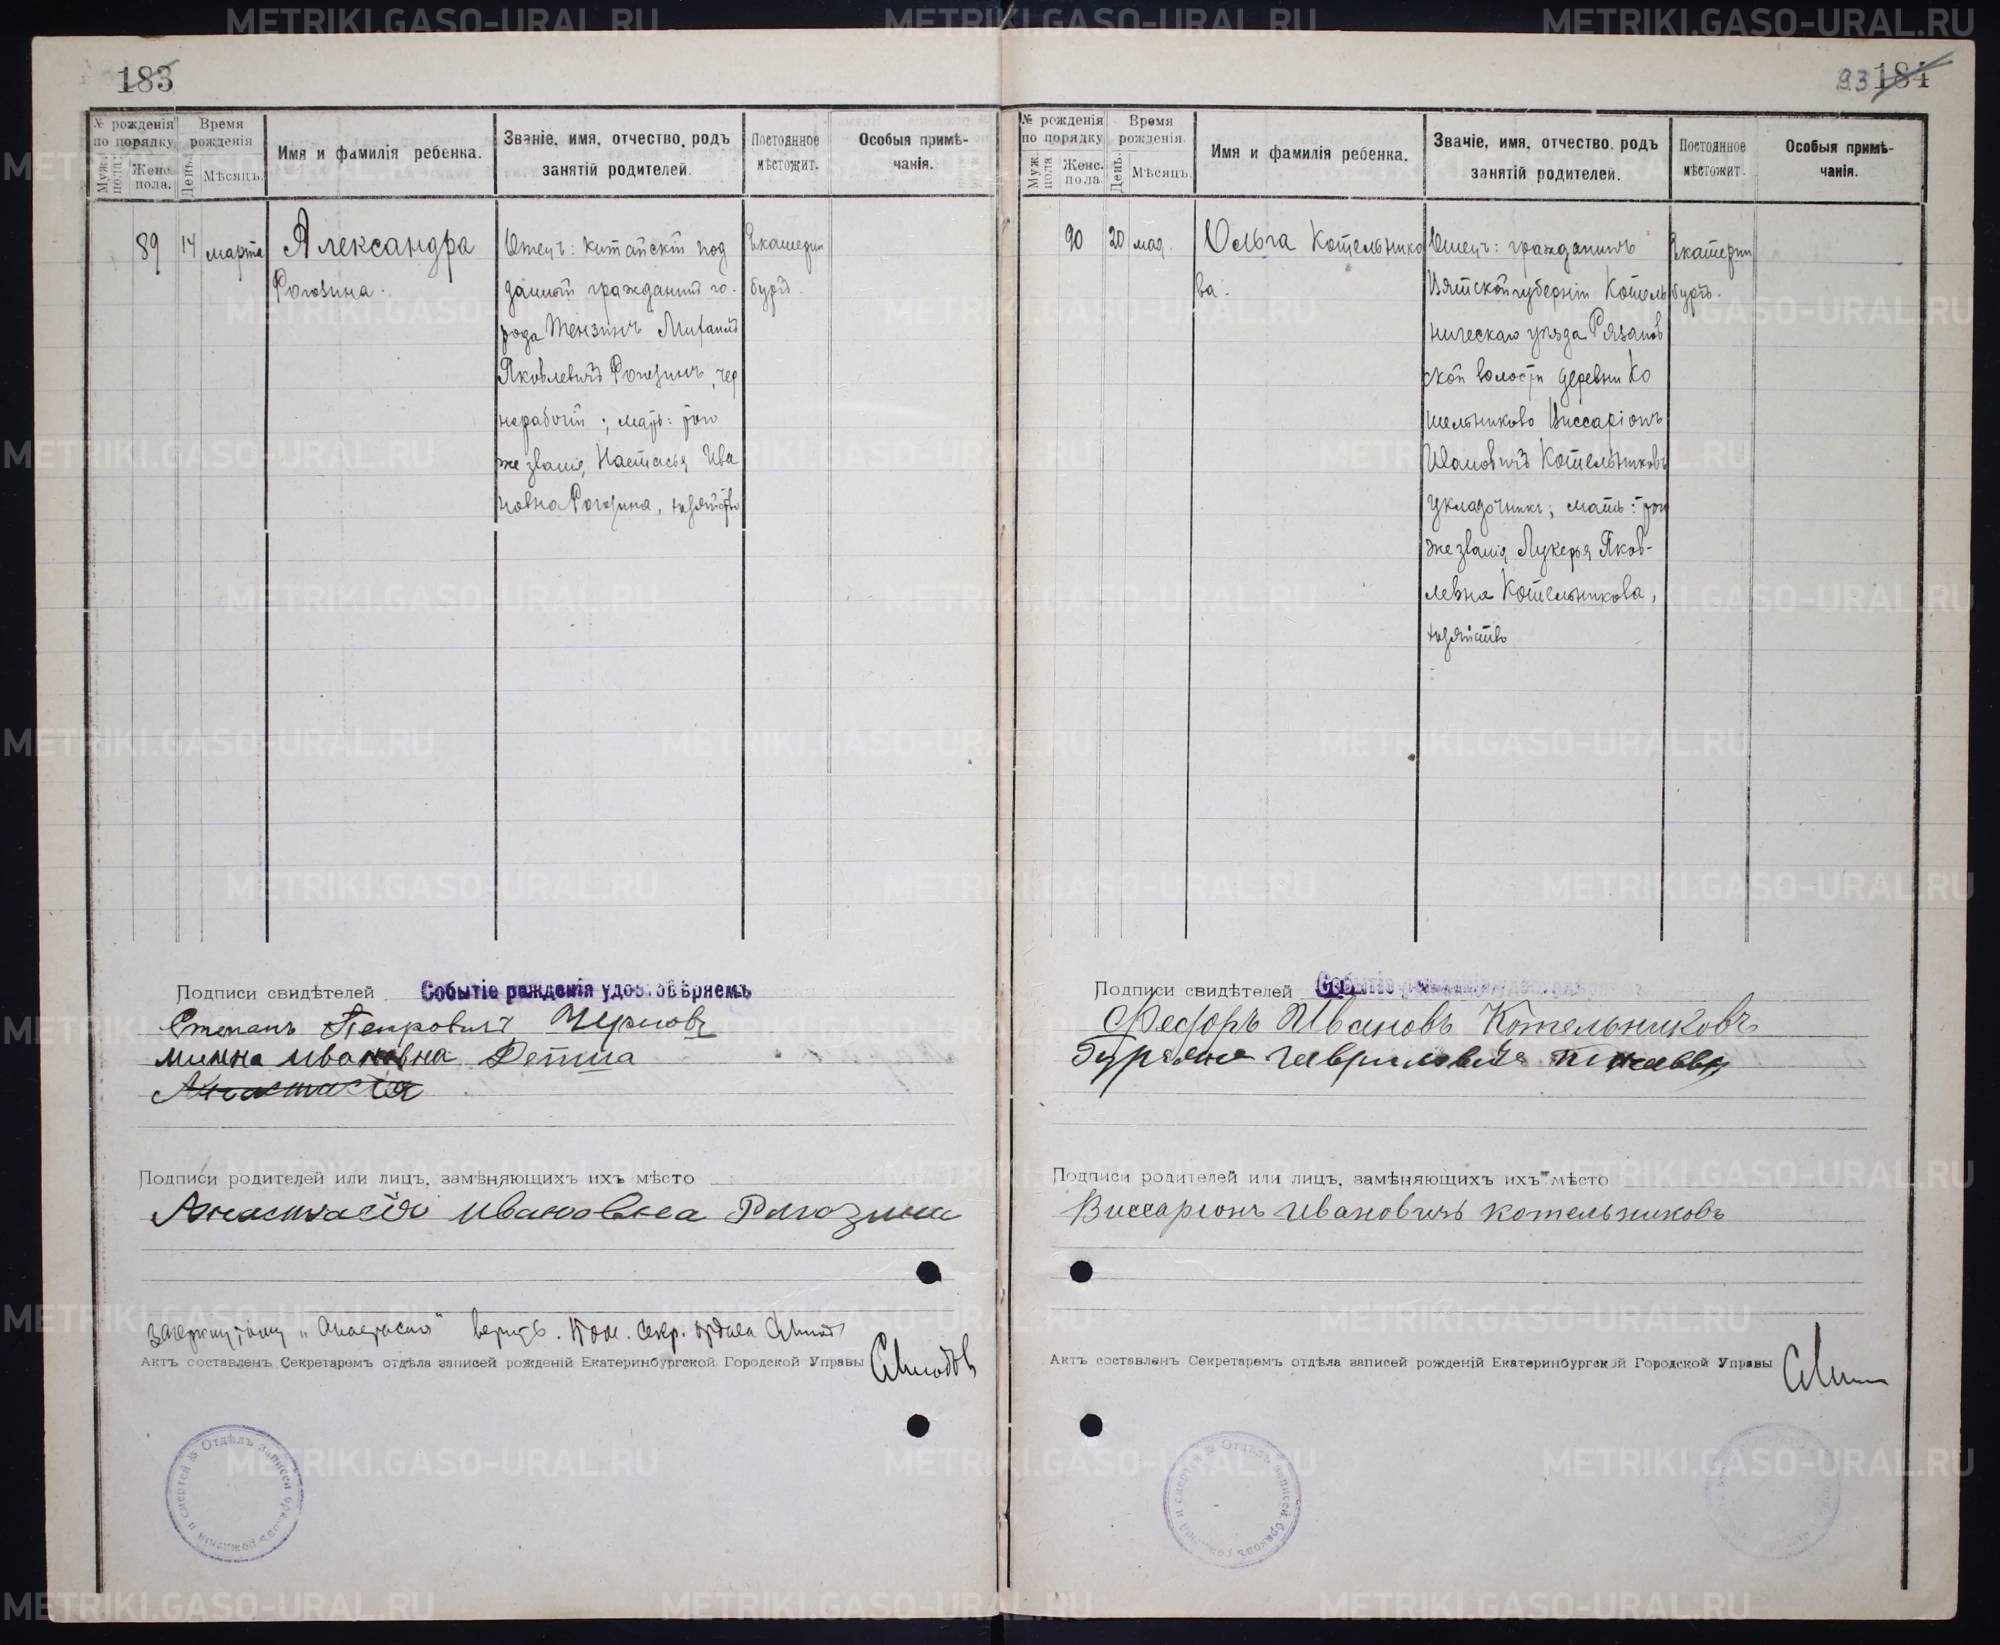 183
№ рожденія по порядку
Муж. пола.
Женс. пола.
Время рожденія
День.
Мѣсяцъ.
Имя и фамилія ребенка.
Званіе, имя, отчество, родъ занятій родителей.
Постоянное мѣстожит.
Особыя примѣчанія.
89
14
марта
Александра
Рогозина.
Отецъ: китайскій под
данный гражданинъ го-
рода Тензинъ Михаилъ
Яковлевичъ Рогозинъ, чер
норабочій; мать: того
же званія, Настасья Ива
новна Рогозина, хозяйство
Екатерин
бургъ.
Подписи свидѣтелей
Событіе рожденія удостовѣряемъ
Степанъ Петровичъ Черновъ
минна ивановна
Анастасія
Подписи родителей или лицъ, замѣняющихъ ихъ мѣсто
Анастасія ивановна Рогозина
зачеркнутому „Анастасія" вѣрить. Пом. секр. отдѣла
Актъ составленъ Секретаремъ отдѣла записей рожденій Екатеринбургской Городской Управы
Отдѣлъ записей браковъ рожденій и смертей
93 184
№ рожденія по порядку
Муж. пола
Женс. пола
Время рожденія
День.
Мѣсяцъ.
Имя и фамилія ребенка.
Званіе, имя, отчество, родъ занятій родителей.
Постоянное мѣстожит.
Особыя примѣчанія.
90
20
мая.
Ольга Котельнико
ва.
Отецъ: гражданинъ
Вятской губерніи Котель
ническаго уѣзда Рязанов
ской волости деревни Ко
тельниково Виссаріонъ
Ивановичъ Котельниковъ
укладчикъ; мать: той
же званія, Лукерья Яков-
левна Котельникова,
хозяйство
Екатерин
бургъ.
Подписи свидѣтелей
Событіе рожденія удостовѣряемъ
Федоръ Ивановъ Котельниковъ
Гавриловичъ
Подписи родителей или лицъ, замѣняющихъ ихъ мѣсто
Виссаріонъ ивановичъ котельниковъ
Актъ составленъ Секретаремъ отдѣла записей рожденій Екатеринбургской Городской Управы
Отдѣлъ записей браковъ рожденій и смертей
METRIKI.GASO-URAL.RU